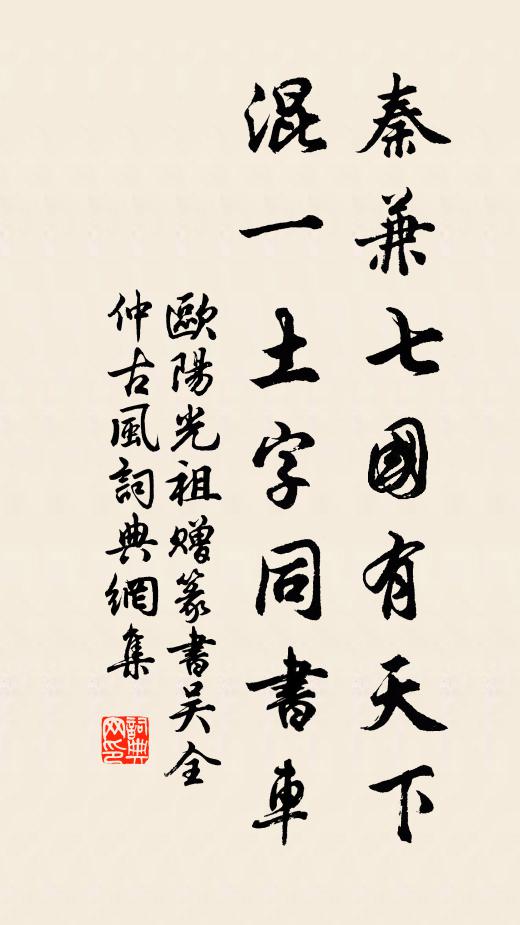 秦兼七國有天下
混一土字同書車
歐陽光祖贈篆書吴全
仲古風詞典網集
詞典网印